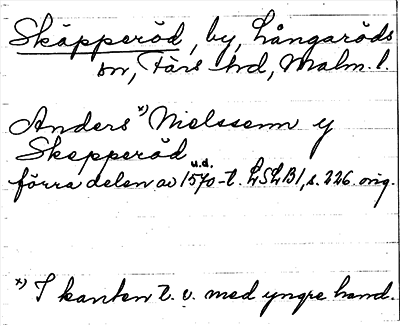 Skäpperöd, by, Långaröds
sn, Färs hd, Malm. l.
Anders *) Nielssenn y
Skepperöd
u.d.
förra delen av 1570-t. LSLB1, s. 226 orig.
*) I kanten t. v. med yngre hand.